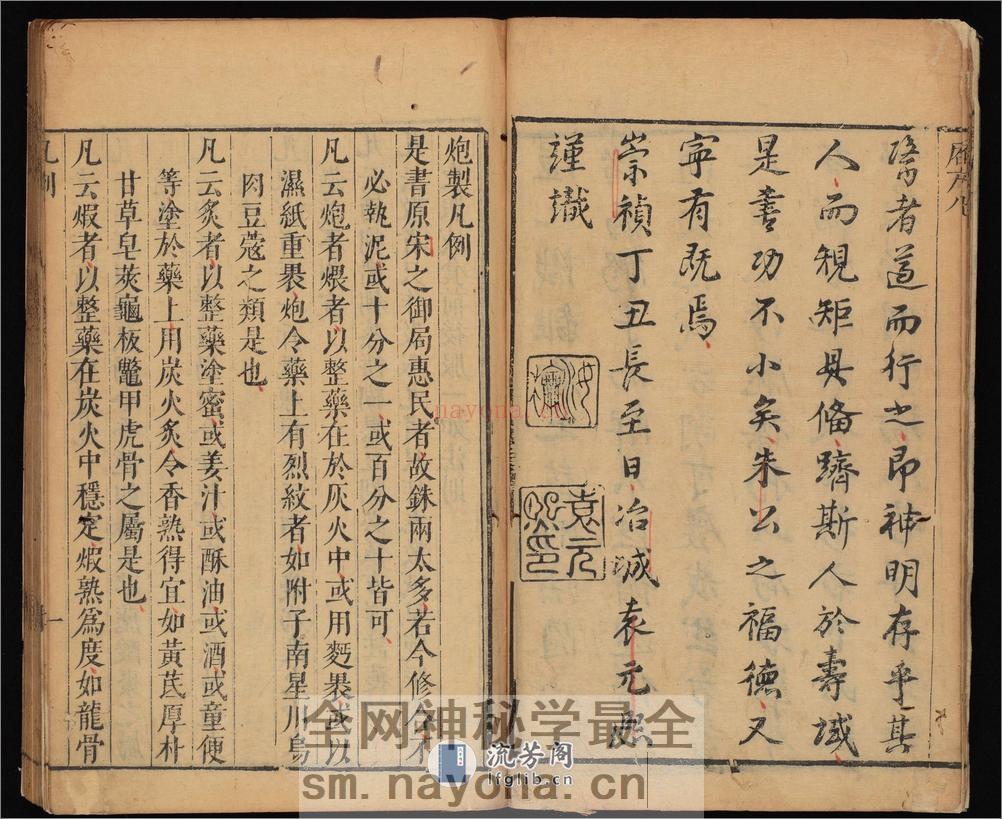 醫者遵而行之即神明存乎其
人而規矩毋偹躋斯人於壽域
是書功不小矣朱公之福德又
寧有既焉
崇禎丁丑長至日冶城袁元熙
謹識
袁元
炮製凡例
是書原宋之御局惠民者故銖兩太多若今修合不
必執泥或十分之一或百分之十皆可
凡云炮者煨者以整藥在於灰火中或用麪裹或以
濕紙重裹炮令藥上有烈紋者如附子南星川烏
肉豆蔻之類是也
凡云炙者以整藥塗蜜或姜汁或酥油或酒或童便
等塗於藥上用炭火炙令香熟得宜如黃芪厚朴
甘草皂莢龜板鼈甲虎骨之屬是也
凡云煅者以整藥在炭火中穩定煅熟爲度如龍骨
凡例
一
nayona.cn
全网神秘学最全
流芳阁
lfglib.cn
sm.nayona.cn